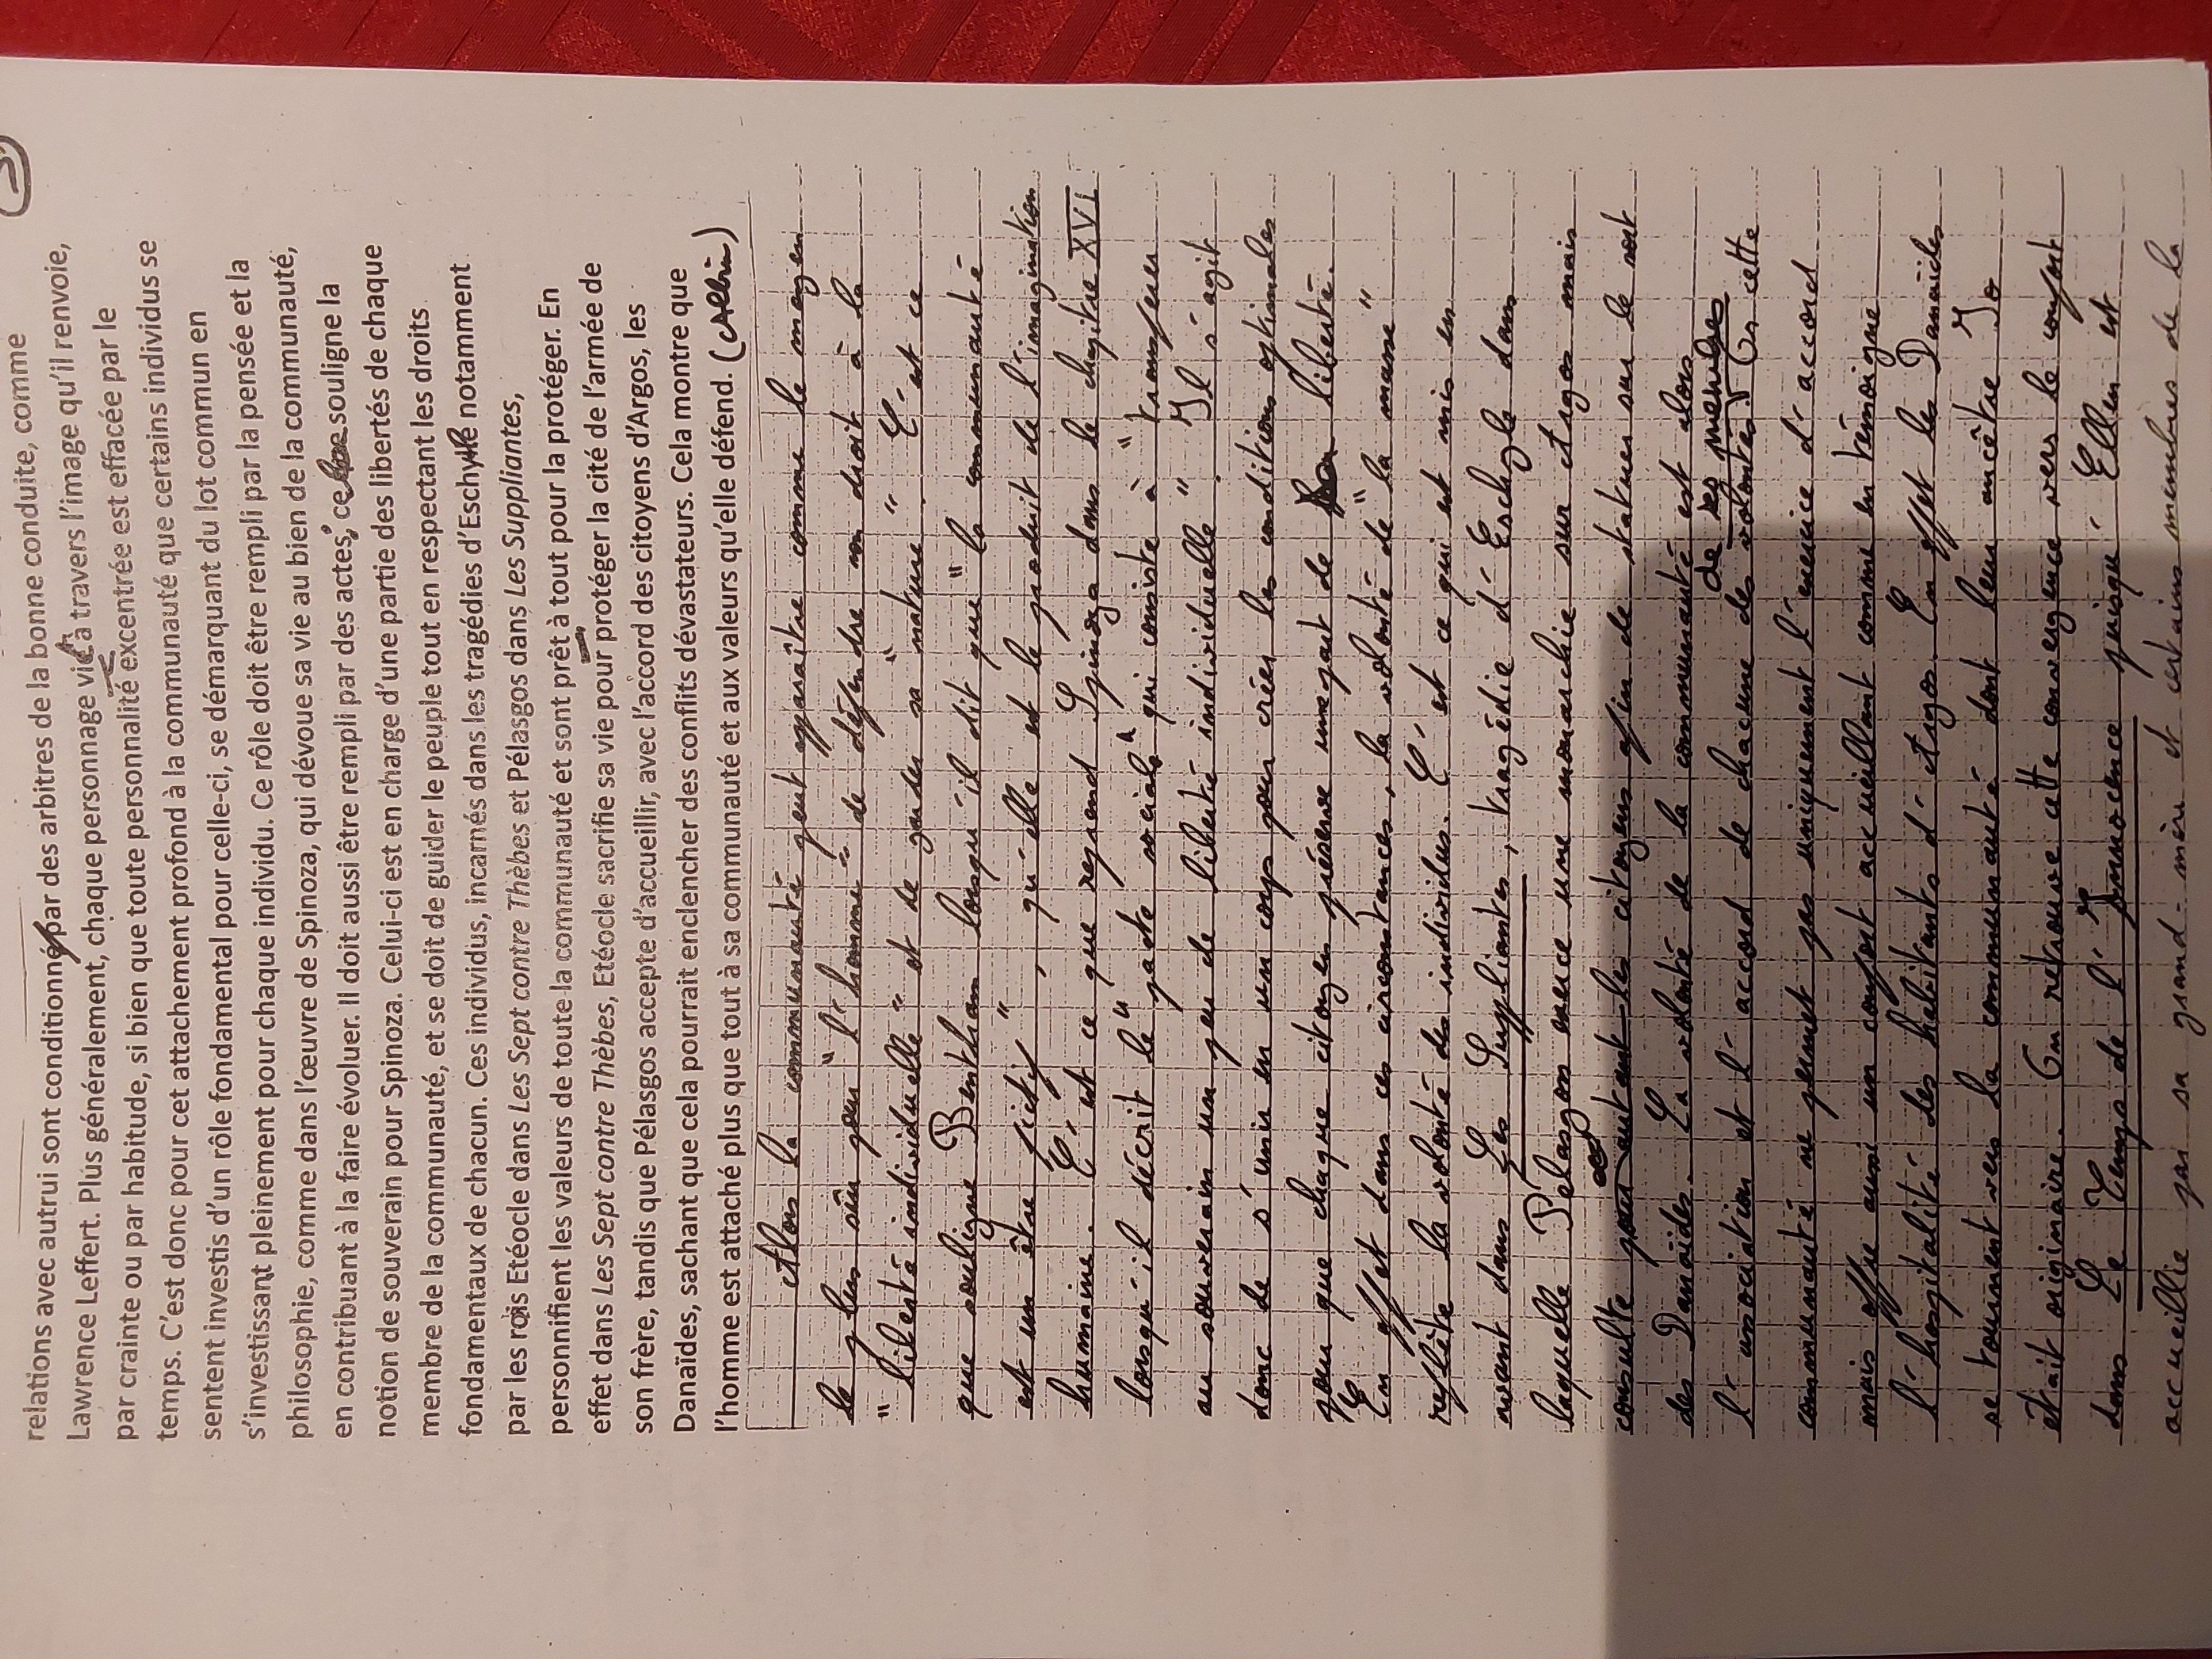 3)
relations avec autrui sont conditionné par des arbitres de la bonne conduite, comme
Lawrence Leffert. Plus généralement, chaque personnage vit à travers l'image qu'il renvoie,
par crainte ou par habitude, si bien que toute personnalité excentrée est effacée par le
temps. C'est donc pour cet attachement profond à la communauté que certains individus se
sentent investis d'un rôle fondamental pour celle-ci, se démarquant du lot commun en
s'investissant pleinement pour chaque individu. Ce rôle doit être rempli par la pensée et la
philosophie, comme dans l'œuvre de Spinoza, qui dévoue sa vie au bien de la communauté,
en contribuant à la faire évoluer. Il doit aussi être rempli par des actes, ce souligne la
notion de souverain pour Spinoza. Celui-ci est en charge d'une partie des libertés de chaque
membre de la communauté, et se doit de guider le peuple tout en respectant les droits
fondamentaux de chacun. Ces individus, incarnés dans les tragédies d'Eschyle notamment
par les rois Etéocle dans Les Sept contre Thèbes et Pélasgos dans Les Suppliantes,
personnifient les valeurs de toute la communauté et sont prêt à tout pour la protéger. En
effet dans Les Sept contre Thèbes, Etéocle sacrifie sa vie pour protéger la cité de l'armée de
son frère, tandis que Pélasgos accepte d'accueillir, avec l'accord des citoyens d'Argos, les
Danaïdes, sachant que cela pourrait enclencher des conflits dévastateurs. Cela montre que
l'homme est attaché plus que tout à sa communauté et aux valeurs qu'elle défend. (
Alors la communauté peut apparaître comme le moyen
le plus sûr pour "l'homme" de défendre son droit à la
"liberté individuelle" et de garder sa "nature". C'est ce
que souligne Bentham lorsqu'il dit que "la communauté
est un être fictif", qu'elle est le produit de l'imagination
humaine. C'est ce que reprend Spinoza dans le chapitre XVI
lorsqu'il décrit le "pacte social" qui consiste à "transférer
au souverain un peu de liberté individuelle". Il s'agit
donc de s'unir en un corps pour créer les conditions optimales
pour que chaque citoyen préserve une part de liberté.
En effet dans ces circonstances, la volonté de "la masse"
reflète la volonté des individus. C'est ce qui est mis en
avant dans Les Suppliantes, tragédie d'Eschyle dans
laquelle Pelasgon exerce une monarchie sur Argos mais
consulte pourtant les citoyens afin de statuer sur le sort
des Danaïdes. La volonté de la communauté est alors
l'association et l'accord de chacune des volontés de ses membres. Or cette
communauté ne permet pas uniquement l'exercice d'accord
mais offre aussi un confort accueillant comme en témoigne
l'hospitalité des habitants d'Argos. En effet les Danaïdes
se tournent vers la communauté dont leur ancêtre Io
était originaire. On retrouve cette convergence vers le confort
dans Le Temps de l'Innocence puisqu'Ellen est
accueillie par sa grand-mère et certains membres de la